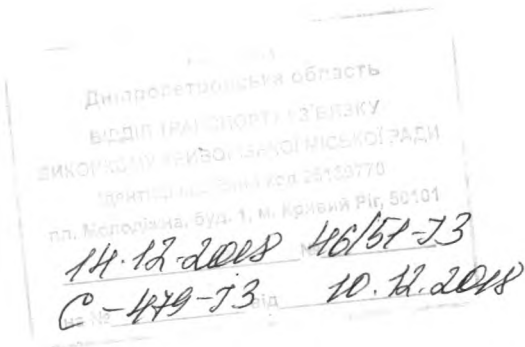 Дніпропетровська область
ВІДДІЛ ТРАНСПОРТУ І ЗВ'ЯЗКУ
ВИКОНКОМУ КРИВОРІЗЬКОЇ МІСЬКОЇ РАДИ
Ідентифікаційний код
пл. Молодіжна, буд. 1, м. Кривий Ріг, 50101
14.12.2018 № 46/51-ЈЗ
на № С-479-ЈЗ від 10.12.2018